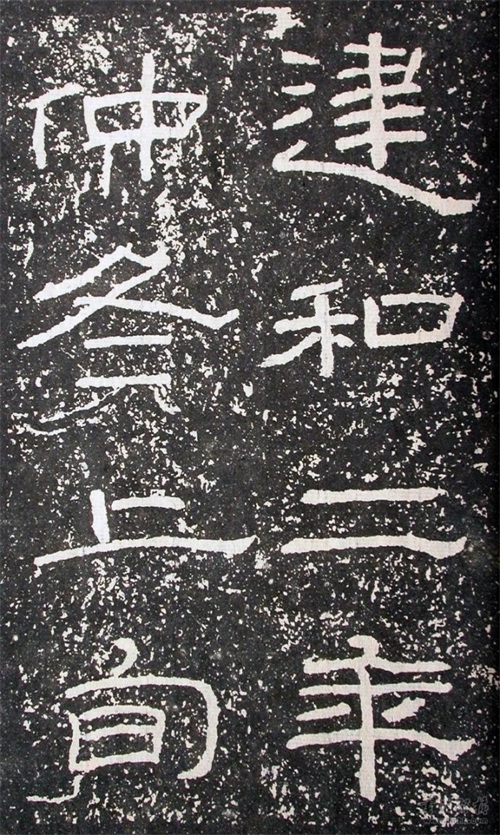 建和二年
仲冬上旬